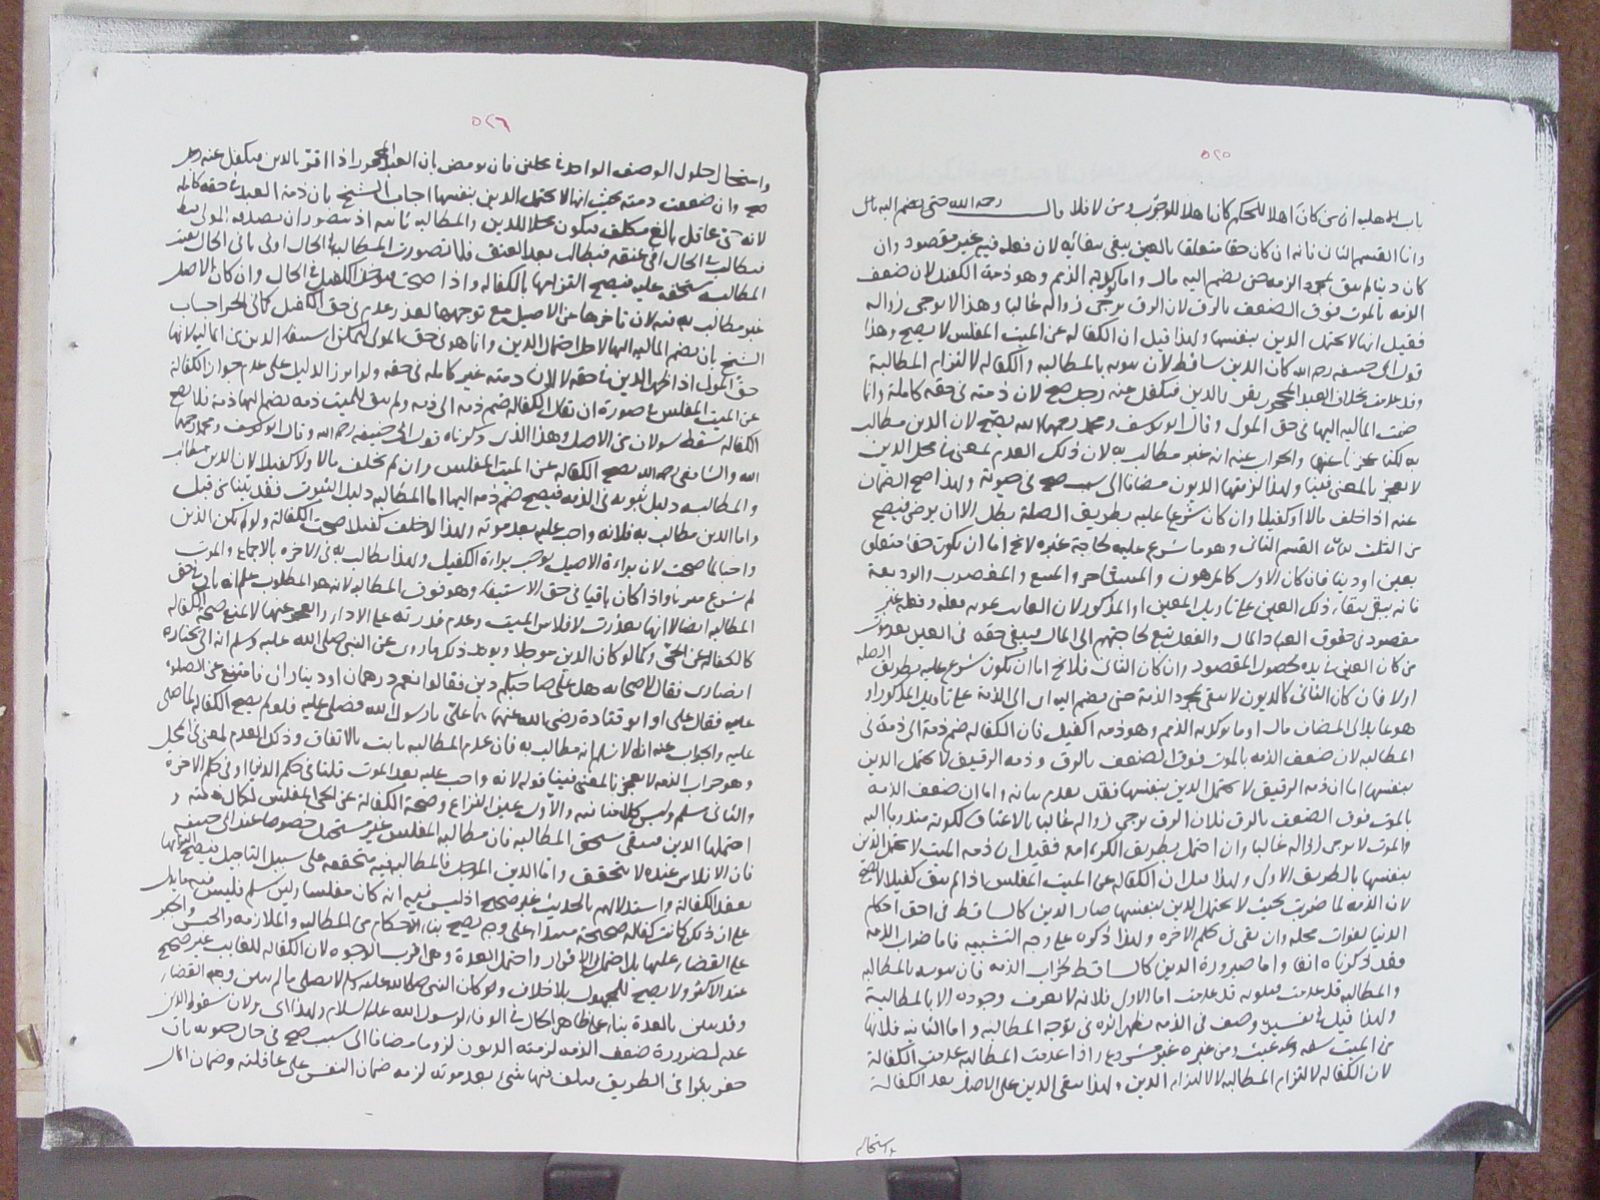 ٥٢٥
باب الاهلية ان من كان اهلا للحكم كان اهلا للوجوب ومن لا فلا قال رحمه الله حتى يضم اليه مال
واما القسم الثاني فانه ان كان حقا متعلقا بالعين يبقى ببقائه لان فعله فيه غير مقصود وان
كان دينا لم يبق بمجرد الذمة حتى يضم اليه مال او ما يؤكد به الذمم وهو ذمة الكفيل لان ضعف
الذمة بالموت فوق الضعف بالرق لان الرق يرجى زواله غالبا وهذا لا يرجى زواله
فقيل انها لا تحتمل الدين بنفسها ولهذا قيل ان الكفالة عن الميت المفلس لا يصح وهذا
قول ابي حنيفة رحمه الله كان الدين ساقط لان ثبوته بالمطالبة والكفالة لالتزام المطالبة
وقد عدمت بخلاف العبد المحجور يقر بالدين فيكفل عنه رجل صح لان ذمته في حقه كاملة وانما
ضمت المالية اليها في حق المولى وقال ابو يوسف ومحمد رحمهما الله يصح لان الدين مطالب
به لكنا عجزنا عنها والجواب عنه انه غير مطالب به لان ذلك العدم لمعنى في محل الدين
لا لعجز بالمعنى فينا ولهذا لزمته الديون مضافا الى سبب صح في حيوته ولهذا صح الضمان
عنه اذا خلف مالا او كفيلا وان كان شرع عليه بطريق الصلة بطل الا ان يوصى فيصح
من الثلث بيان القسم الثاني وهو ما شرع عليه لحاجة غيره لا يخ اما ان يكون حقا متعلقا
بعين او دينا فان كان الاول كالمرهون والمستاجر والمبيع والمغصوب والوديعة
فانه يبقى ببقاء ذلك العين على تاويل المعين او المذكور لان الفايت بموته فعله وفعله غير
مقصود في حقوق العباد المال والفعل تبع لحاجتهم الى المال فيبقى حقه في العين بعد موت
من كان العين في يده لحصول المقصود وان كان الثاني فلا يخ اما ان يكون شرع عليه بطريق الصلة
اولا فان كان الثاني كالديون لا يبقى بمجرد الذمة حتى يضم اليه اى الى الذمة على تاويل المذكور او
هو عايد الى المضاف مال او ما يؤكد به الذمم وهو ذمة الكفيل فان الكفالة ضم ذمة الى ذمة في
المطالبة لان ضعف الذمة بالموت فوق الضعف بالرق وذمة الرقيق لا تحتمل الدين
بنفسها اما ان ذمة الرقيق لا تحتمل الدين بنفسها فقد تقدم بيانه واما ان ضعف الذمة
بالموت فوق الضعف بالرق فلان الرق يرجى زواله غالبا بالاعتاق لكونه مندوبا اليه
والموت لا يرجى زواله غالبا وان احتمل بطريق الكرامة فقيل ان ذمة الميت لا تحتمل الدين
بنفسها بالطريق الاولى ولهذا قيل ان الكفالة عن الميت المفلس اذا لم يبق كفيلا لا تصح
لان الذمة لما ضربت بحيث لا تحتمل الدين بنفسها صار الدين كالساقط في احق احكام
الدنيا لفوات محله وان بقى في حكم الاخرة ولهذا ذكره على وجه التشبيه فاما خراب الذمة
فقد ذكرناه انفا واما صيرورة الدين كالساقط لخراب الذمة فان ثبوته بالمطالبة
والمطالبة قد عدمت فثبوته قد عدمت اما الاول فلانه لا يعرف وجوده الا بالمطالبة
ولهذا قيل في تفسيره وصف في الذمة يظهر اثره في توجه المطالبة واما الثانية فلانها
من الميت وعبث ومن غيره غير مشروع واذا عدمت المطالبة عدمت الكفالة
لان الكفالة لالتزام المطالبة لا لالتزام الدين ولهذا يبقى الدين على الاصيل بعد الكفالة
واستحال
٥٢٦
واستحال حلول الوصف الواحد في محلين فان نوقض بان العبد المحجور اذا اقر بالدين فيكفل عنه رجل
صح وان ضعفت ذمته بحيث انها لا تحتمل الدين بنفسها اجاب الشيخ بان ذمة العبد في حقه كاملة
لانه حي عاقل بالغ مكلف فيكون محلا للدين والمطالبة ثابتة اذ يتصور ان يصدقه المولى
فيطالب في الحال او يعتقه فيطالب بعد العتق فلما تصورت المطالبة في الحال او في ثاني الحال بقيت
المطالبة مستحقة عليه فيصح التزامها بالكفالة واذا صحت يؤخذ الكفيل في الحال وان كان الاصل
غير مطالب به فيه لان تاخرها عن الاصيل مع توجهها لعذر عدم في حق الكفيل
الشيخ بان يضم المالية اليها لاجل احتمال الدين وانما هو في حق المولى ليمكن استيفاء الدين من المالية لانها
حق المولى اذا ظهر الدين في حقه لا لان ذمته غير كاملة في حقه ولو ابرز الدليل على عدم جواز الكفالة
عن الميت المفلس في صورة ان يقال الكفالة ضم ذمة الى ذمة ولم يبق للميت ذمة يضم اليها ذمة فلا يصح
الكفالة سقط سؤلان من الاصل وهذا الذي ذكرناه قول ابي حنيفة رحمه الله وقال ابو يوسف ومحمد رحمهما
الله والشافعي رحمه الله يصح الكفالة عن الميت المفلس وان لم يخلف مالا ولا كفيلا لان الدين مطالب
والمطالبة دليل ثبوته في الذمة فيصح ضم ذمة اليها اما المطالبة دليل الثبوت فقد بينا من قبل
واما الدين مطالب به فلانه واجب عليه بعد موته ولهذا لو خلف كفيلا صحت الكفالة ولو لم يكن الدين
واجبا لما صحت لان براءة الاصيل يوجب براءة الكفيل ولهذا يطالب به في الاخرة بالاجماع والموت
لم يشرع مبرئا واذا كان باقيا في حق الاستيفاء وهو فوق المطالبة لانه هو المطلوب علم انه باق في حق
المطالبة ايضا الا انها تعذرت لافلاس الميت وعدم قدرته على الاداء والعجز عنها لا يمنع صحة الكفالة
كالكفالة عن الحي وكما لو كان الدين مؤجلا ويؤيد ذلك ما روى عن النبي صلى الله عليه وسلم انه اتى بجنازة
انصارى فقال لاصحابه هل على صاحبكم دين فقالوا نعم درهمان او ديناران فامتنع عن الصلوة
عليه فقال علي او ابو قتادة رضي الله عنهما هما علي يا رسول الله فصلى عليه فلو لم يصح الكفالة لما صلى
عليه والجواب عنه انا لا نسلم انه مطالب به فان عدم المطالبة ثابت بالاتفاق وذلك العدم لمعنى في المحل
وهو خراب الذمة لا لعجز بالمعنى فينا قوله لانه واجب عليه بعد الموت قلنا في حكم الدنيا او في حكم الاخرة
والثاني مسلم وليس كلامنا فيه والاول عين النزاع وصحة الكفالة عن الحي المفلس لكمال ذمته و
احتمالها الدين فيبقى مستحق المطالبة فان مطالبة المفلس غير مستحيل خصوصا عند ابي حنيفة
فان الافلاس عنده لا يتحقق واما الدين المؤجل فالمطالبة فيه متحققة على سبيل التاجيل فيصح التزامها
بعقد الكفالة واستدلالهم بالحديث غير صحيح اذ ليس فيه انه كان مفلسا ولئن سلم فليس فيه ما يدل
على ان ذلك كانت كفالة صحيحة مبتداة على وجه يصح بناء الاحكام من المطالبة والملازمة والحبس والجبر
على القضاء عليها بل احتمل الاقرار واحتمل العدة وهي اقرب الوجوه لان الكفالة للغايب غير صحيح
عند الاكثر ولا يصح للمجهول بلا خلاف ولو كان النبي صلى الله عليه وسلم لا يصلي ما لم يتبين وجه القضاء
وقد يتبين بالعدة بناء على ظاهر الحال في الوفاء لرسول الله عليه السلام ولهذا اى ولان سقوط الدين
عنه لضرورة ضعف الذمة لزمته الديون لزوما مضافا الى سبب صح في حال حيوته بان
حفر بئرا في الطريق فيتلف فيها شئ بعد موته لزمه ضمان النفس على عاقلته وضمان المال